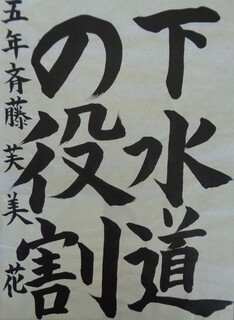 下水道
の役割
五年斉藤芙美花